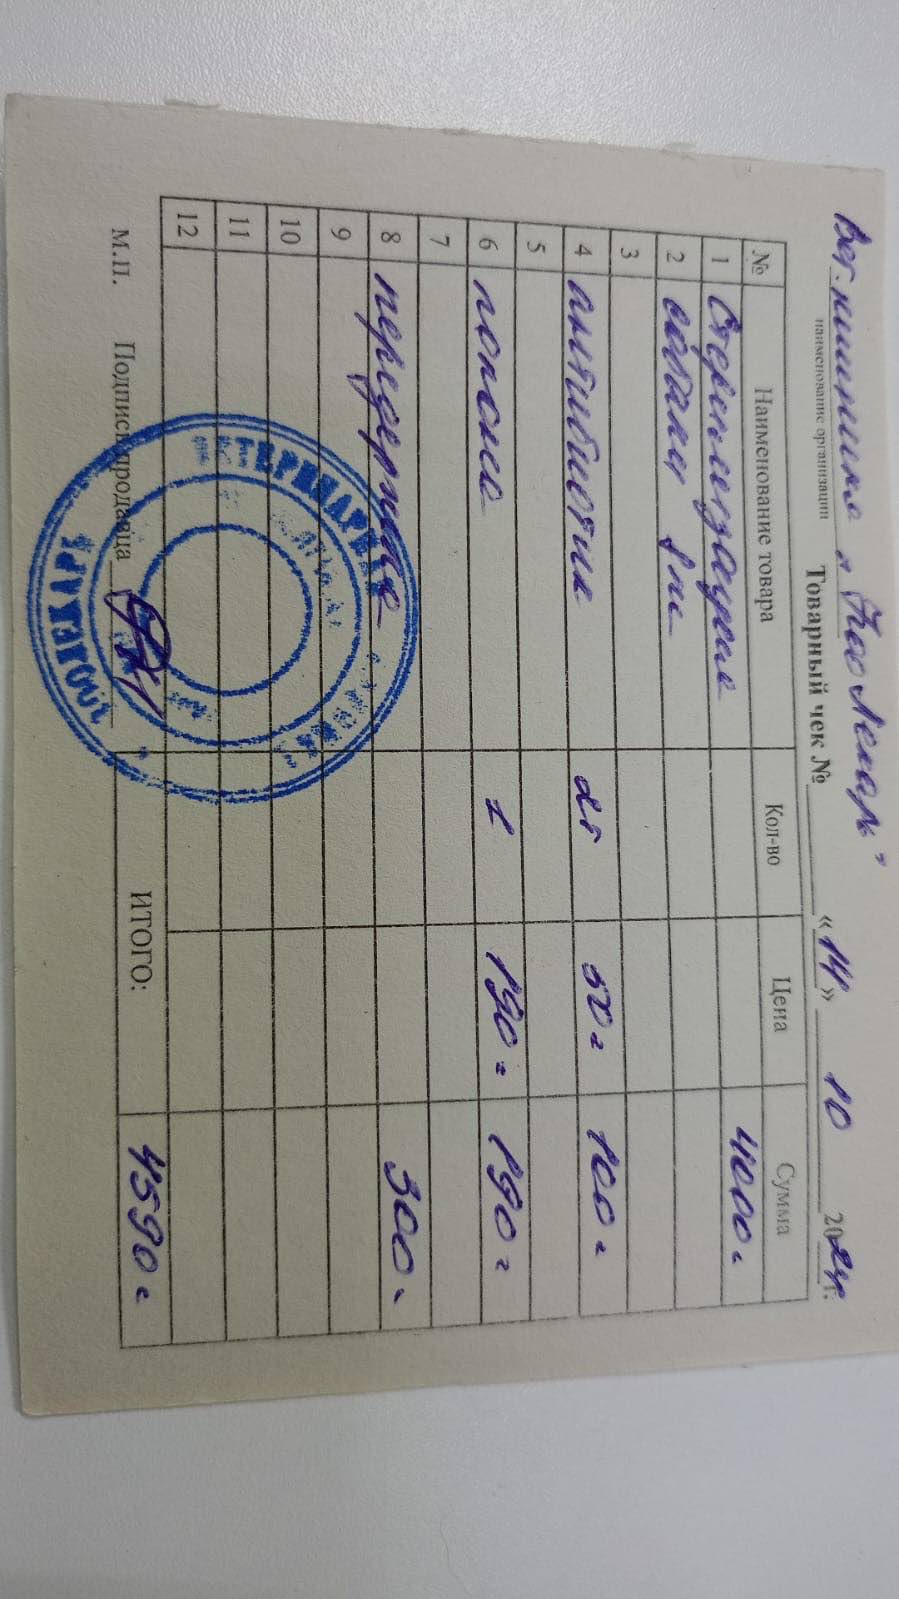 Вет. клиника "ЗооЛекарь"
наименование организации
Товарный чек № «14» 10 2024г.
№ Наименование товара Кол-во Цена Сумма
1 Стерилизация 4000=
2 собаки 1
3
4 антибиотик 50= 100=
5
6 попона 1 190= 190=
7
8 передержка 300=
9
10
11
12
ИТОГО: 4590=
М.П. Подпись продавца
ВЕТЕРИНАРНАЯ КЛИНИКА
ЗООЛЕКАРЬ